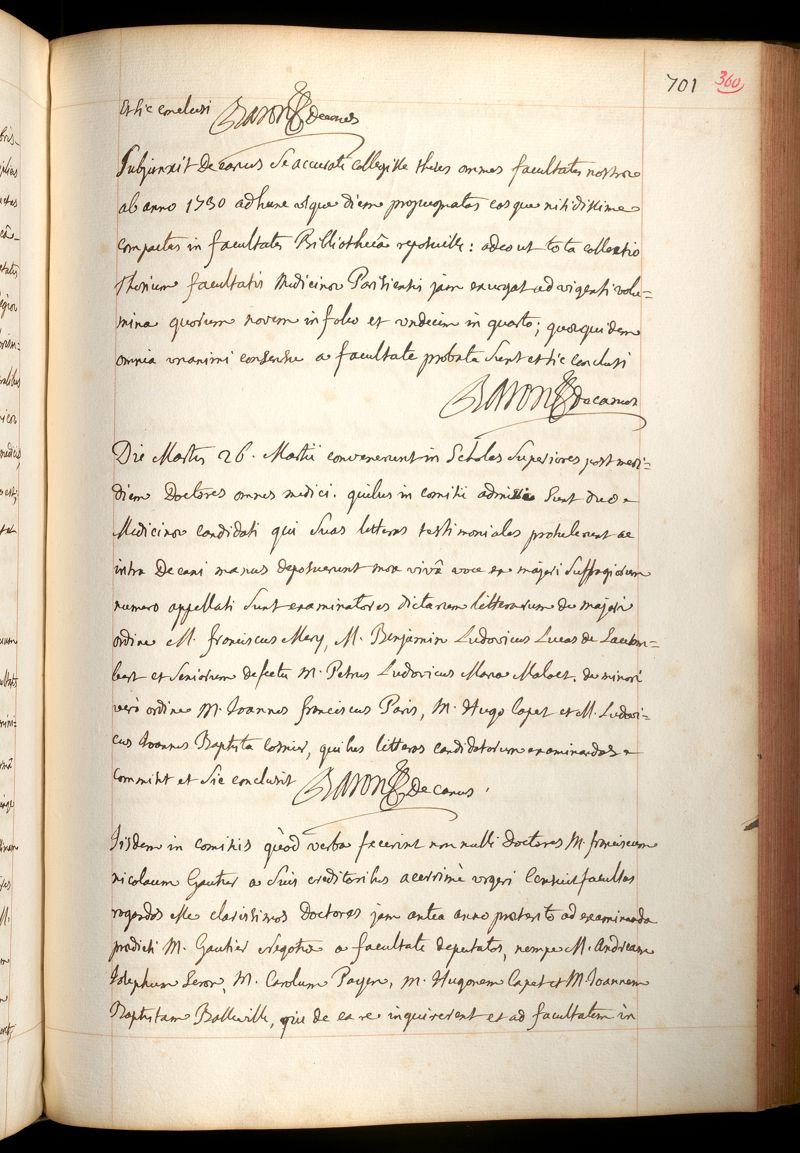 701 360
et sic conclusi Baron Decanus
Subjunxit Decanus se accurate collegisse theses omnes facultatis nostræ
ab anno 1730 ad hunc usque diem propugnatas easque nitidissime
compactas in facultatis Bibliothecâ reposuisse: adeo ut tota collectio
Thesium facultatis Medicinæ Parisiensis jam exurgat ad viginti volu=
mina quorum novem in folio et undecim in quarto; quæ quidem
omnia unanimi consensu a facultate probata sunt et sic conclusi
Baron Decanus
Die Martis 26. Martii convenerunt in Scholas Superiores post meri=
diem Doctores omnes medici. quibus in comitiis admissi sunt duo
Medicinæ candidati qui suas litteras testimoniales protulerunt ac
intra Decani manus deposuerunt mox vivâ voce ex majori suffragiorum
numero appellati sunt examinatores dictarum litterarum de majori
ordine M. franciscus Mery, M. Benjamin Ludovicus Lucas de Laurem=
bert et seniorum defectu M. Petrus Ludovicus Maria Maloet. de minori
verò ordine M. Joannes franciscus Paris, M. Hugo Capet et M. Ludovi=
cus Joannes Baptista Cosnier, quibus litteras candidatorum examinandas
commisit et sic conclusit Baron Decanus.
Iisdem in comitiis quòd verba fecerint non nulli doctores M. franciscum
nicolaum Gautier a suis creditoribus acerrimè urgeri Censuit facultas
rogandos esse clarissimos doctores jam antea anno præterito ad examinanda
prædicti M. Gautier negotia a facultate deputatos, nempe M. Andream
Josephum Leron, M. Carolum Payen, M. Hugonem Capet et M. Joannem
Baptistam Basseville, qui de ea re inquirerent et ad facultatem in